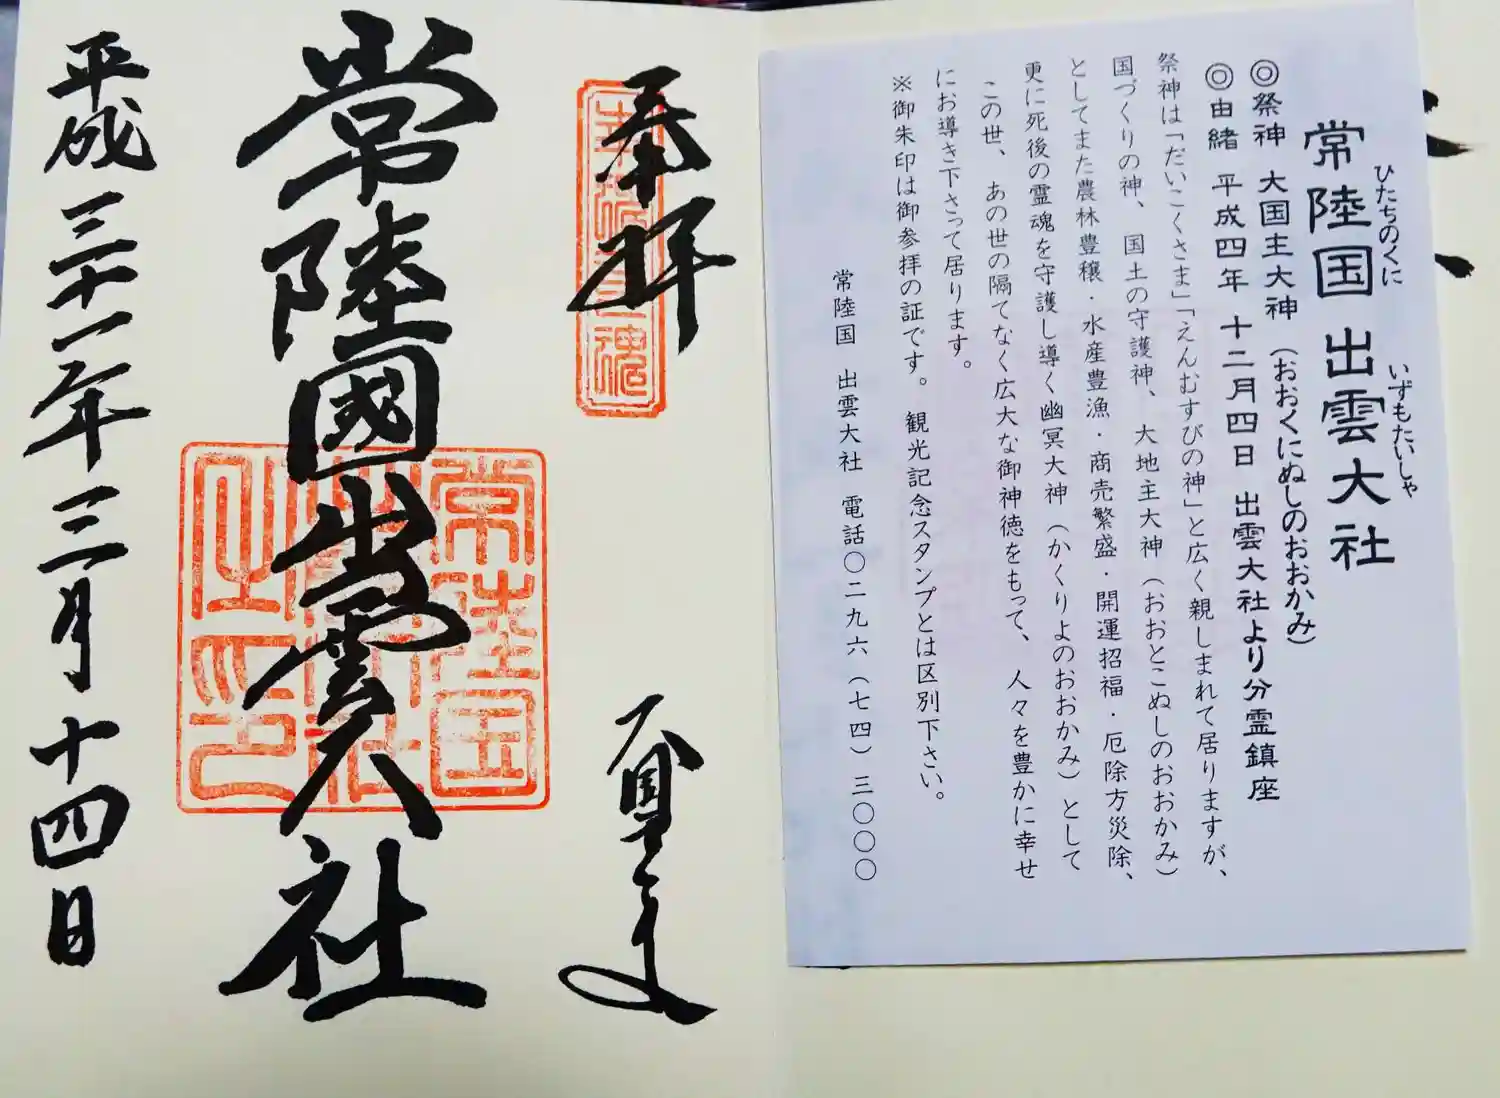 常陸国 出雲大社
ひたちのくに いずもたいしゃ
◎祭神 大国主大神（おおくにぬしのおおかみ）
◎由緒 平成四年 十二月四日 出雲大社より分霊鎮座
祭神は「だいこくさま」「えんむすびの神」と広く親しまれて居りますが、
国づくりの神、国土の守護神、大地主大神（おおとこぬしのおおかみ）
としてまた農林豊穣・水産豊漁・商売繁盛・開運招福・厄除方災除、
更に死後の霊魂を守護し導く幽冥大神（かくりよのおおかみ）として
この世、あの世の隔てなく広大な御神徳をもって、人々を豊かに幸せ
にお導き下さって居ります。
※御朱印は御参拝の証です。観光記念スタンプとは区別下さい。
常陸国 出雲大社 電話〇二九六（七四）三〇〇〇
奉拝
幸魂奇魂
常陸國出雲大社
常陸国出雲大社之印
平成三十一年三月十四日